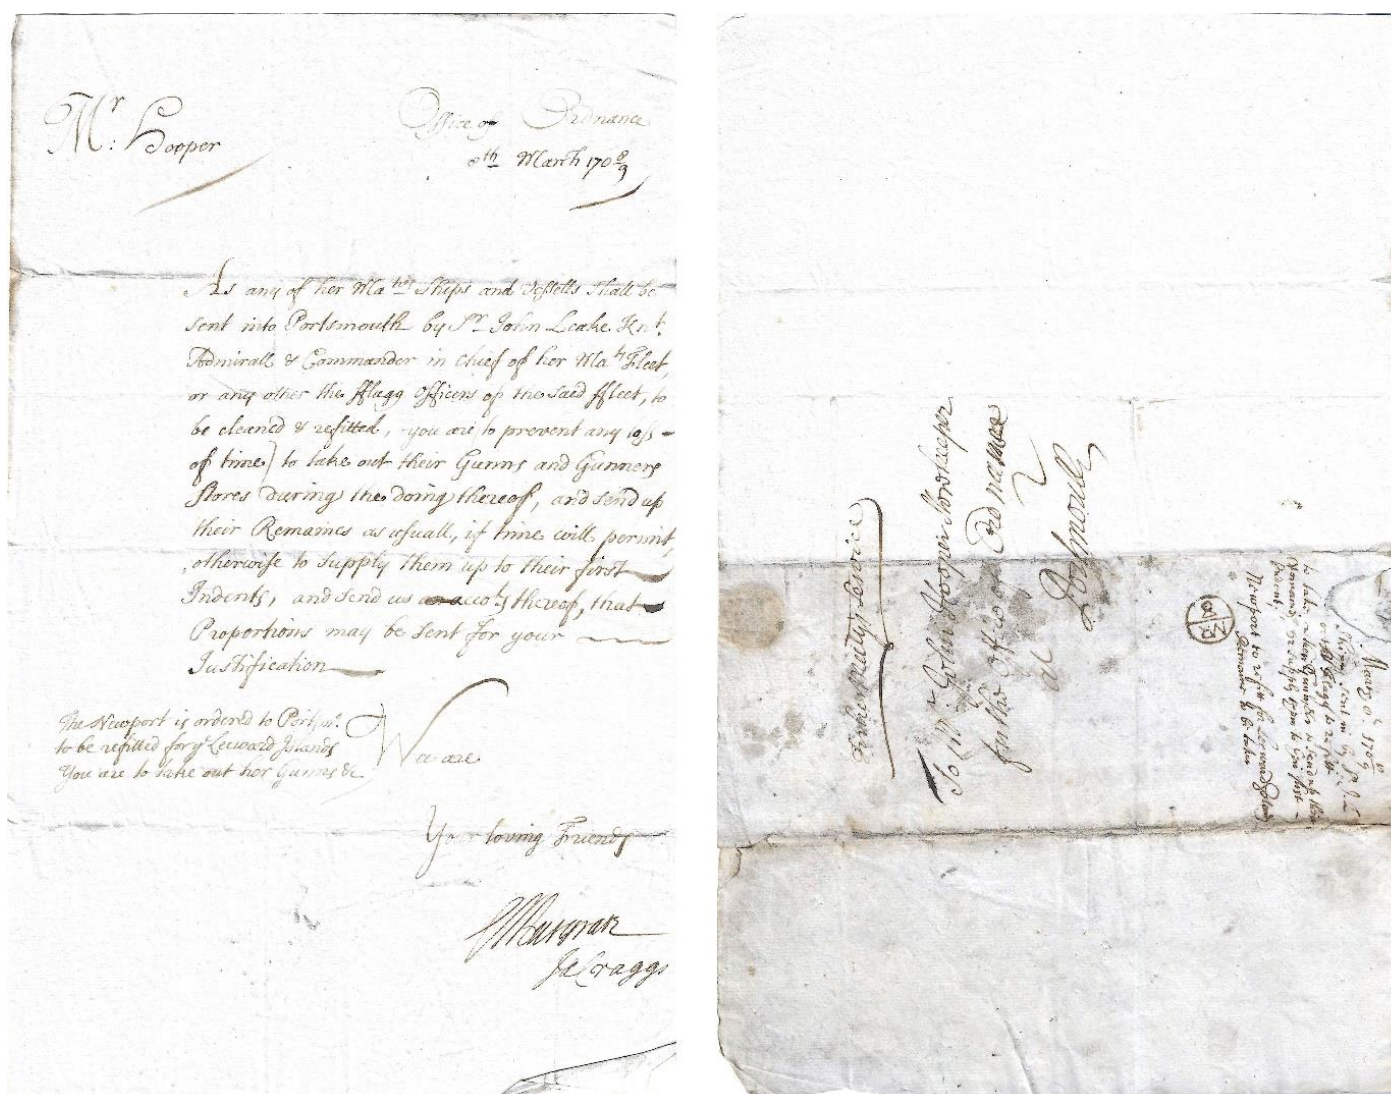 Mr: Hooper
Office of Ordnance
8th March 1708/9
As any of her Mats ships and Vessells shall be
sent into Portsmouth by Sr John Leake Knt.
Admirall & Commander in Cheif of her Mats Fleet,
or any other the fflagg Officers of the said ffleet, to
be cleaned & refitted, you are to prevent any loss
of time) to take out their Gunns and Gunners
Stores during the doing thereof, and send up
their Remaines as usuall, if time will permit,
otherwise to supply them up to their first
Indents, and send us accots thereof, that
Proportions may be sent for your
Justification
The Newport is ordered to Portsmo.
to be refitted for ye Leeward Islands
You are to take out her Gunns &c
Wee are
Your loving Friends
Musgrave
Ja Craggs
For her Majtys Service
To Mr John Hooper Storekeeper
for the Office of Ordnance
at
Portsmouth
MR
8
March 8th 1708/9
Shipps sent in by Sr J:L
or other fflagg to refitt
to take out their Gunns & send up their
Remains, or supply them to their first
Indent,
Newport to refitt for Leeward Islands
Remains to be taken